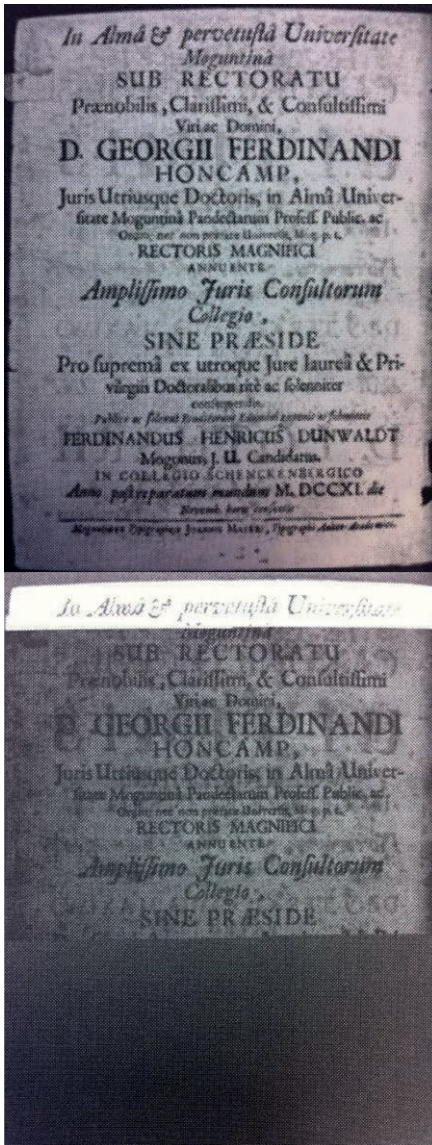 In Almâ & pervetustâ Universitate
Moguntinâ
SUB RECTORATU
Prænobilis, Clarissimi, & Consultissimi
Viri ac Domini,
D. GEORGII FERDINANDI
HONCAMP,
Juris Utriusque Doctoris, in Almâ Univer-
sitate Moguntinâ Pandectarum Profess. Public. ac
RECTORIS MAGNIFICI
ANNUENTE
Amplissimo Juris Consultorum
Collegio,
SINE PRÆSIDE
Pro supremâ ex utroque Jure laureâ & Pri-
vilegiis Doctoralibus ritè ac solenniter
consequendis
Publicè ac
FERDINANDUS HENRICUS DUNWALDT
Mogonus, J. U. Candidatus.
IN COLLEGIO SCHENCKENBERGICO
Anno post reparatum mundum M. DCCXI. die
Novemb. horis consuetis
Moguntiæ Typographeo JOANNIS MAYERI, Typographi
In Almâ & pervetustâ Universitate
Moguntinâ
SUB RECTORATU
Prænobilis, Clarissimi, & Consultissimi
Viri ac Domini,
D. GEORGII FERDINANDI
HONCAMP,
Juris Utriusque Doctoris, in Almâ Univer-
sitate Moguntinâ Pandectarum Profess. Public. ac
RECTORIS MAGNIFICI
ANNUENTE
Amplissimo Juris Consultorum
Collegio,
SINE PRÆSIDE